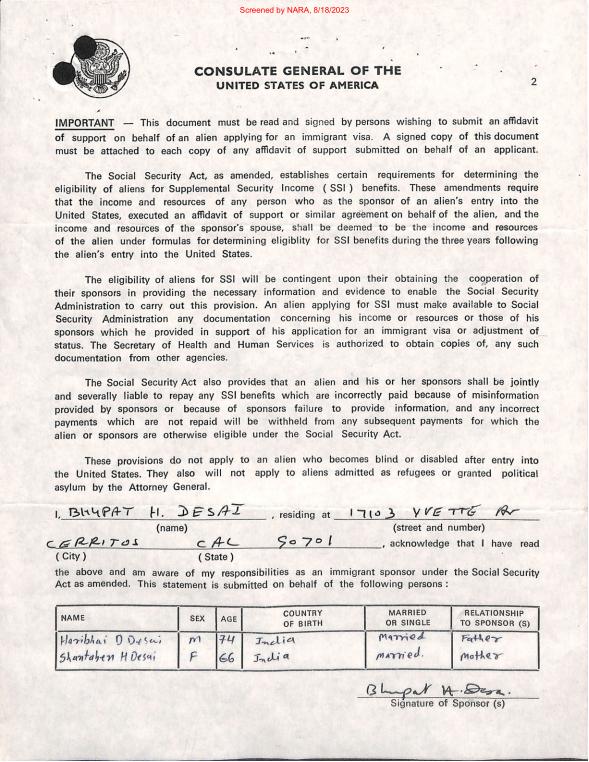 Screened by NARA, 8/18/2023
CONSULATE GENERAL OF THE
UNITED STATES OF AMERICA
2
IMPORTANT — This document must be read and signed by persons wishing to submit an affidavit
of support on behalf of an alien applying for an immigrant visa. A signed copy of this document
must be attached to each copy of any affidavit of support submitted on behalf of an applicant.
The Social Security Act, as amended, establishes certain requirements for determining the
eligibility of aliens for Supplemental Security Income ( SSI ) benefits. These amendments require
that the income and resources of any person who as the sponsor of an alien's entry into the
United States, executed an affidavit of support or similar agreement on behalf of the alien, and the
income and resources of the sponsor's spouse, shall be deemed to be the income and resources
of the alien under formulas for determining eligiblity for SSI benefits during the three years following
the alien's entry into the United States.
The eligibility of aliens for SSI will be contingent upon their obtaining the cooperation of
their sponsors in providing the necessary information and evidence to enable the Social Security
Administration to carry out this provision. An alien applying for SSI must make available to Social
Security Administration any documentation concerning his income or resources or those of his
sponsors which he provided in support of his application for an immigrant visa or adjustment of
status. The Secretary of Health and Human Services is authorized to obtain copies of, any such
documentation from other agencies.
The Social Security Act also provides that an alien and his or her sponsors shall be jointly
and severally liable to repay any SSI benefits which are incorrectly paid because of misinformation
provided by sponsors or because of sponsors failure to provide information, and any incorrect
payments which are not repaid will be withheld from any subsequent payments for which the
alien or sponsors are otherwise eligible under the Social Security Act.
These provisions do not apply to an alien who becomes blind or disabled after entry into
the United States. They also will not apply to aliens admitted as refugees or granted political
asylum by the Attorney General.
I, BHUPAT H. DESAI , residing at 17103 YVETTE Av
(name) (street and number)
CERRITOS CAL 90701 , acknowledge that I have read
( City ) ( State )
the above and am aware of my responsibilities as an immigrant sponsor under the Social Security
Act as amended. This statement is submitted on behalf of the following persons :
NAME SEX AGE COUNTRY OF BIRTH MARRIED OR SINGLE RELATIONSHIP TO SPONSOR (S)
Haribhai D Desai M 74 India Married Father
Shantaben H Desai F 66 India Married. Mother
Bhupat H. Desai.
Signature of Sponsor (s)